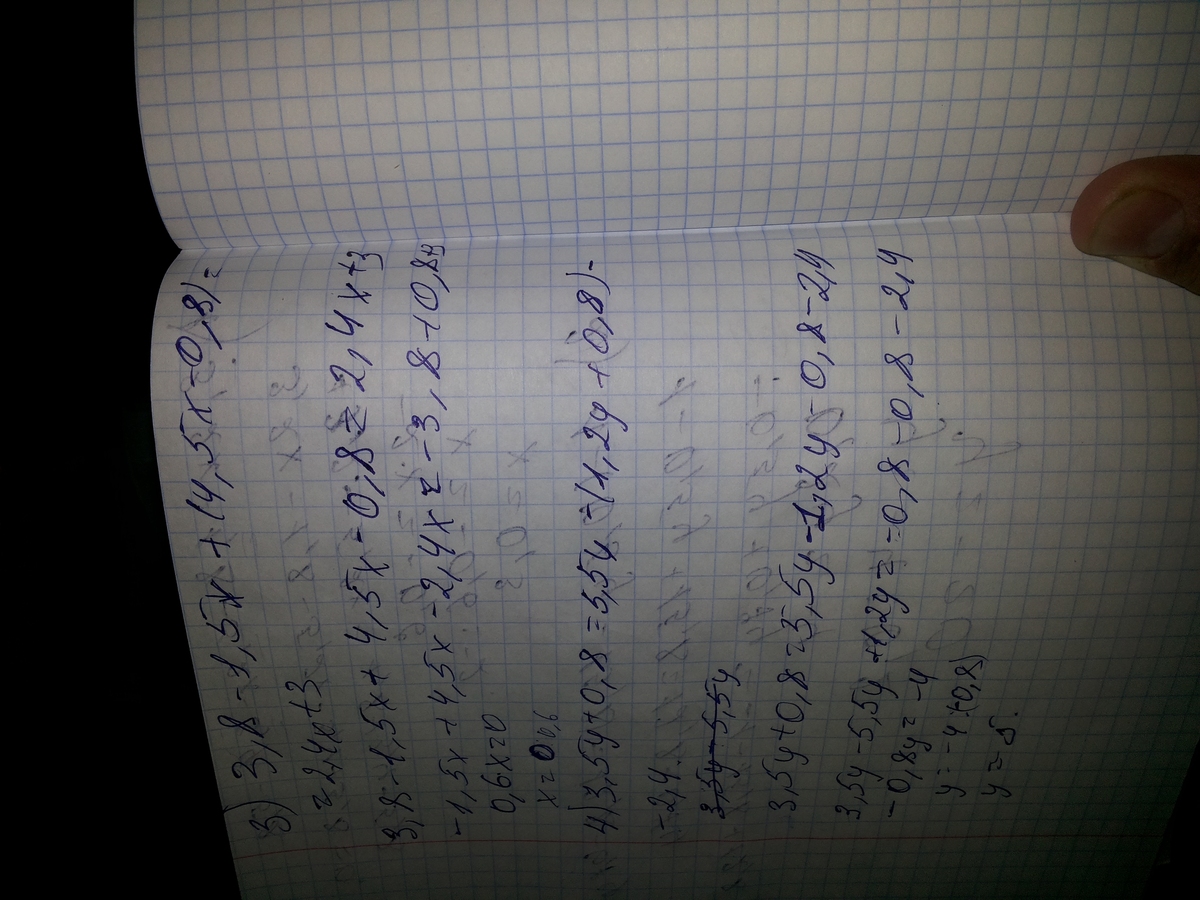 3) 3,8 - 1,5x + (4,5x - 0,8) =
= 2,4x + 3
3,8 - 1,5x + 4,5x - 0,8 = 2,4x + 3
-1,5x + 4,5x - 2,4x = -3,8 + 0,8 + 3
0,6x = 0
x = 0
4) 3,5y + 0,8 = 5,5y - (1,2y + 0,8) -
- 2,4.
3,5y + 0,8 = 5,5y - 1,2y - 0,8 - 2,4
3,5y - 5,5y + 1,2y = -0,8 - 0,8 - 2,4
-0,8y = -4
y = -4 : (-0,8)
y = 5.